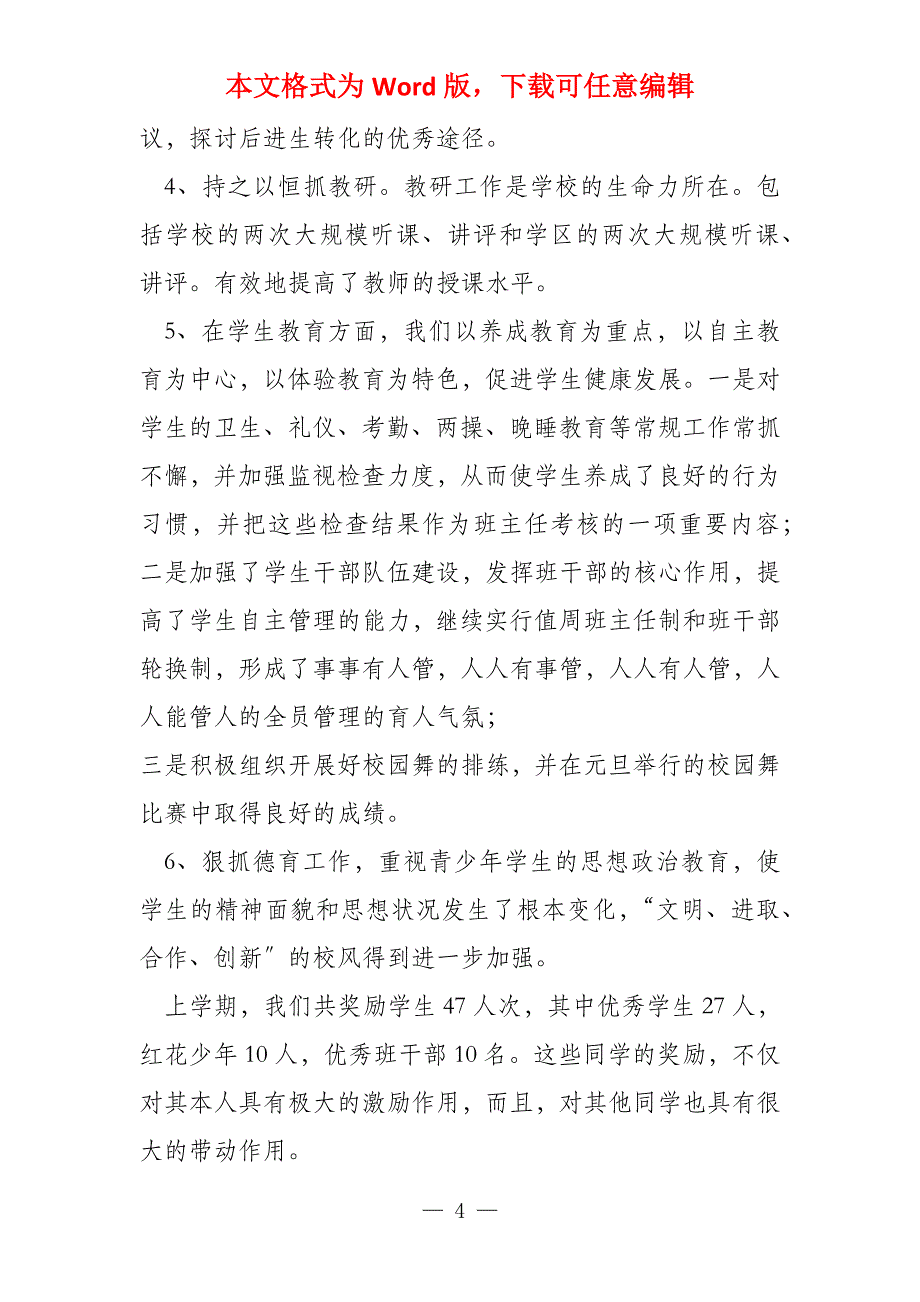 本文格式为 Word 版，下载可任意编辑
议，探讨后进生转化的优秀途径。
4、持之以恒抓教研。教研工作是学校的生命力所在。包
括学校的两次大规模听课、讲评和学区的两次大规模听课、
讲评。有效地提高了教师的授课水平。
5、在学生教育方面，我们以养成教育为重点，以自主教
育为中心，以体验教育为特色，促进学生健康发展。一是对
学生的卫生、礼仪、考勤、两操、晚睡教育等常规工作常抓
不懈，并加强监视检查力度，从而使学生养成了良好的行为
习惯，并把这些检查结果作为班主任考核的一项重要内容；
二是加强了学生干部队伍建设，发挥班干部的核心作用，提
高了学生自主管理的能力，继续实行值周班主任制和班干部
轮换制，形成了事事有人管，人人有事管，人人有人管，人
人能管人的全员管理的育人气氛；
三是积极组织开展好校园舞的排练，并在元旦举行的校园舞
比赛中取得良好的成绩。
6、狠抓德育工作，重视青少年学生的思想政治教育，使
学生的精神面貌和思想状况发生了根本变化，“文明、进取、
合作、创新〞的校风得到进一步加强。
上学期，我们共奖励学生 47 人次，其中优秀学生 27 人，
红花少年 10 人，优秀班干部 10 名。这些同学的奖励，不仅
对其本人具有极大的激励作用，而且，对其他同学也具有很
大的带动作用。
— 4 —